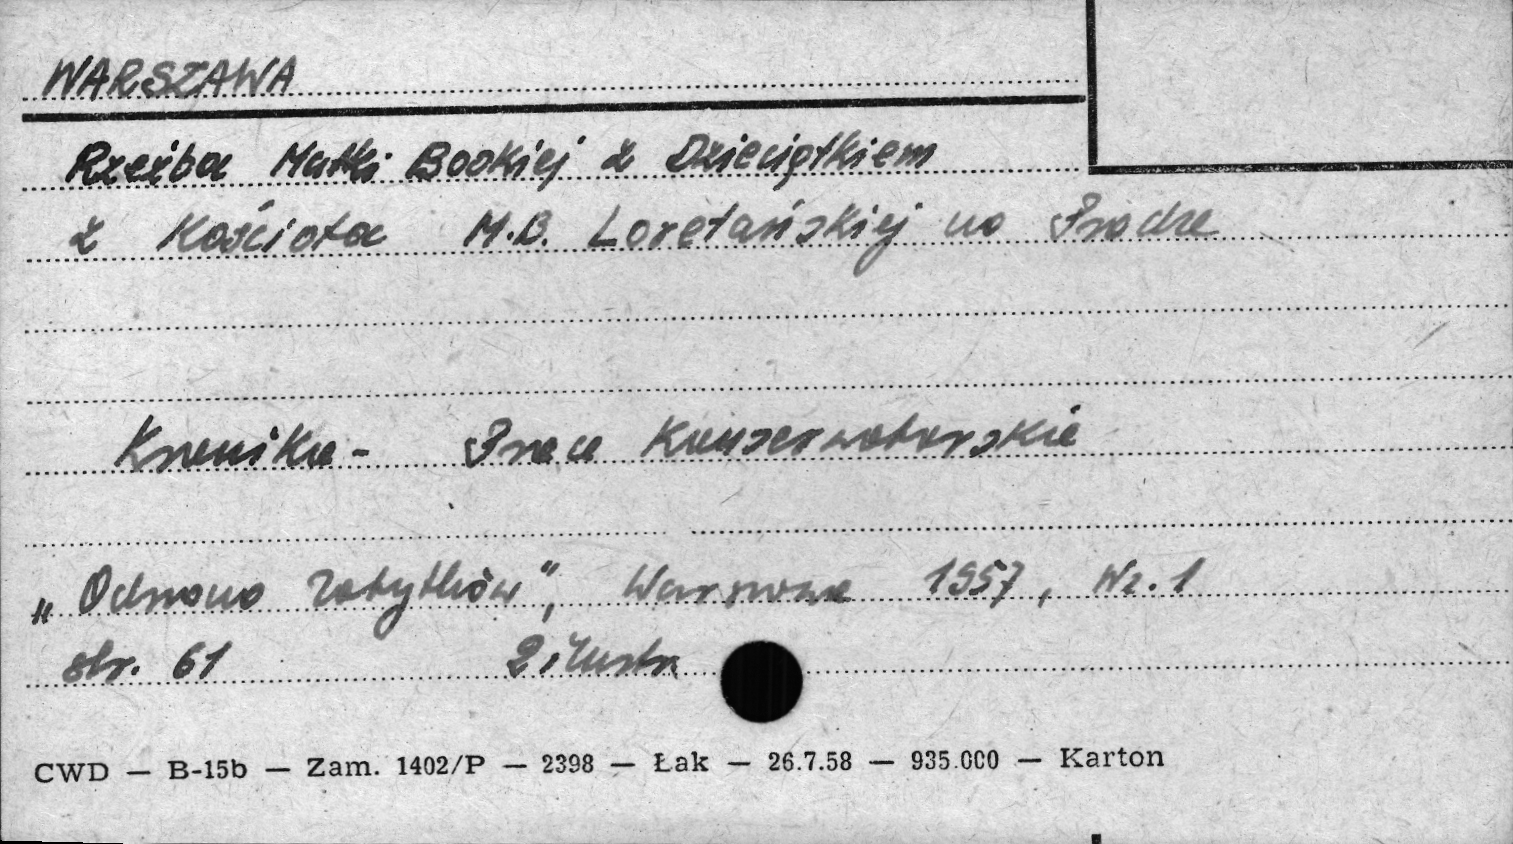 WARSZAWA
Rzeźba Matki Boskiej z Dzieciątkiem
z Kościoła M.B. Loretańskiej na Pradze
Kronika - Prace Konserwatorskie
„Ochrona Zabytków”, Warszawa 1957, Nr. 1
str. 61 2 ilustr.
CWD — B-15b — Zam. 1402/P — 2398 — Łak — 26.7.58 — 935.000 — Karton